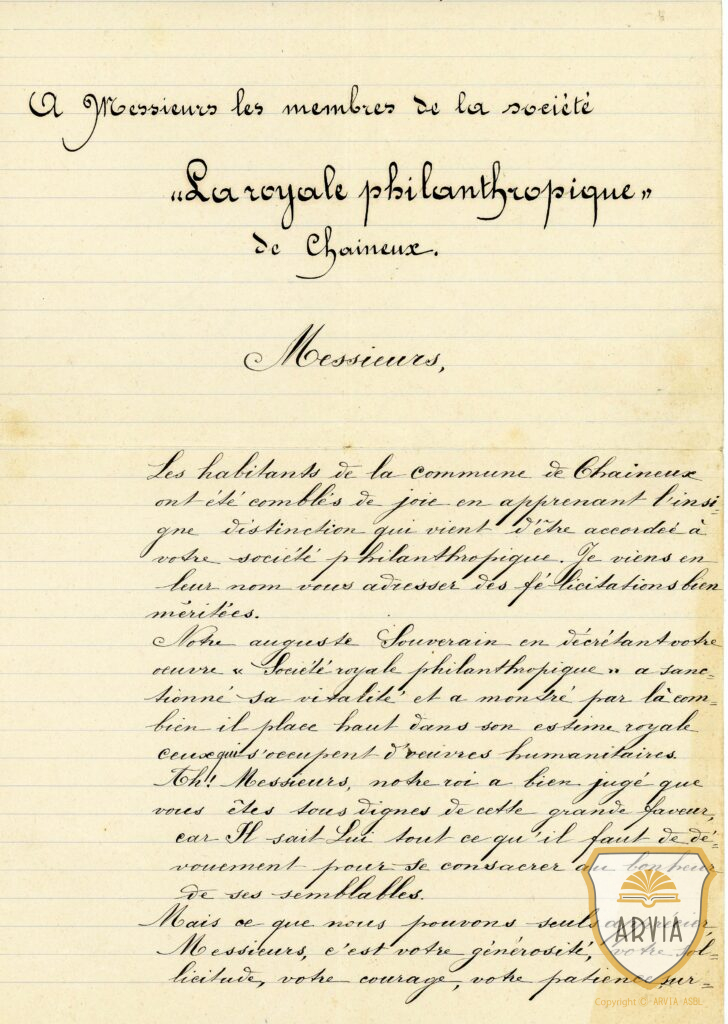 A Messieurs les membres de la société
"La royale philanthropique"
de Chaineux.
Messieurs,
Les habitants de la commune de Chaineux
ont été comblés de joie en apprenant l'insi=
gne distinction qui vient d'être accordée à
votre société philanthropique. Je viens en
leur nom vous adresser des félicitations bien
méritées.
Notre auguste Souverain en décrétant votre
oeuvre « Société royale philanthropique » a sanc=
tionné sa vitalité et a montré par là com=
bien il place haut dans son estime royale
ceux qui s'occupent d'oeuvres humanitaires.
Ah! Messieurs, notre roi a bien jugé que
vous êtes tous dignes de cette grande faveur,
car Il sait Lui tout ce qu'il faut de dé=
vouement pour se consacrer au bonheur
de ses semblables.
Mais ce que nous pouvons seuls
Messieurs, c'est votre générosité, votre sol=
licitude, votre courage, votre patience, sur=
ARVIA
Copyright © ARVIA ASBL